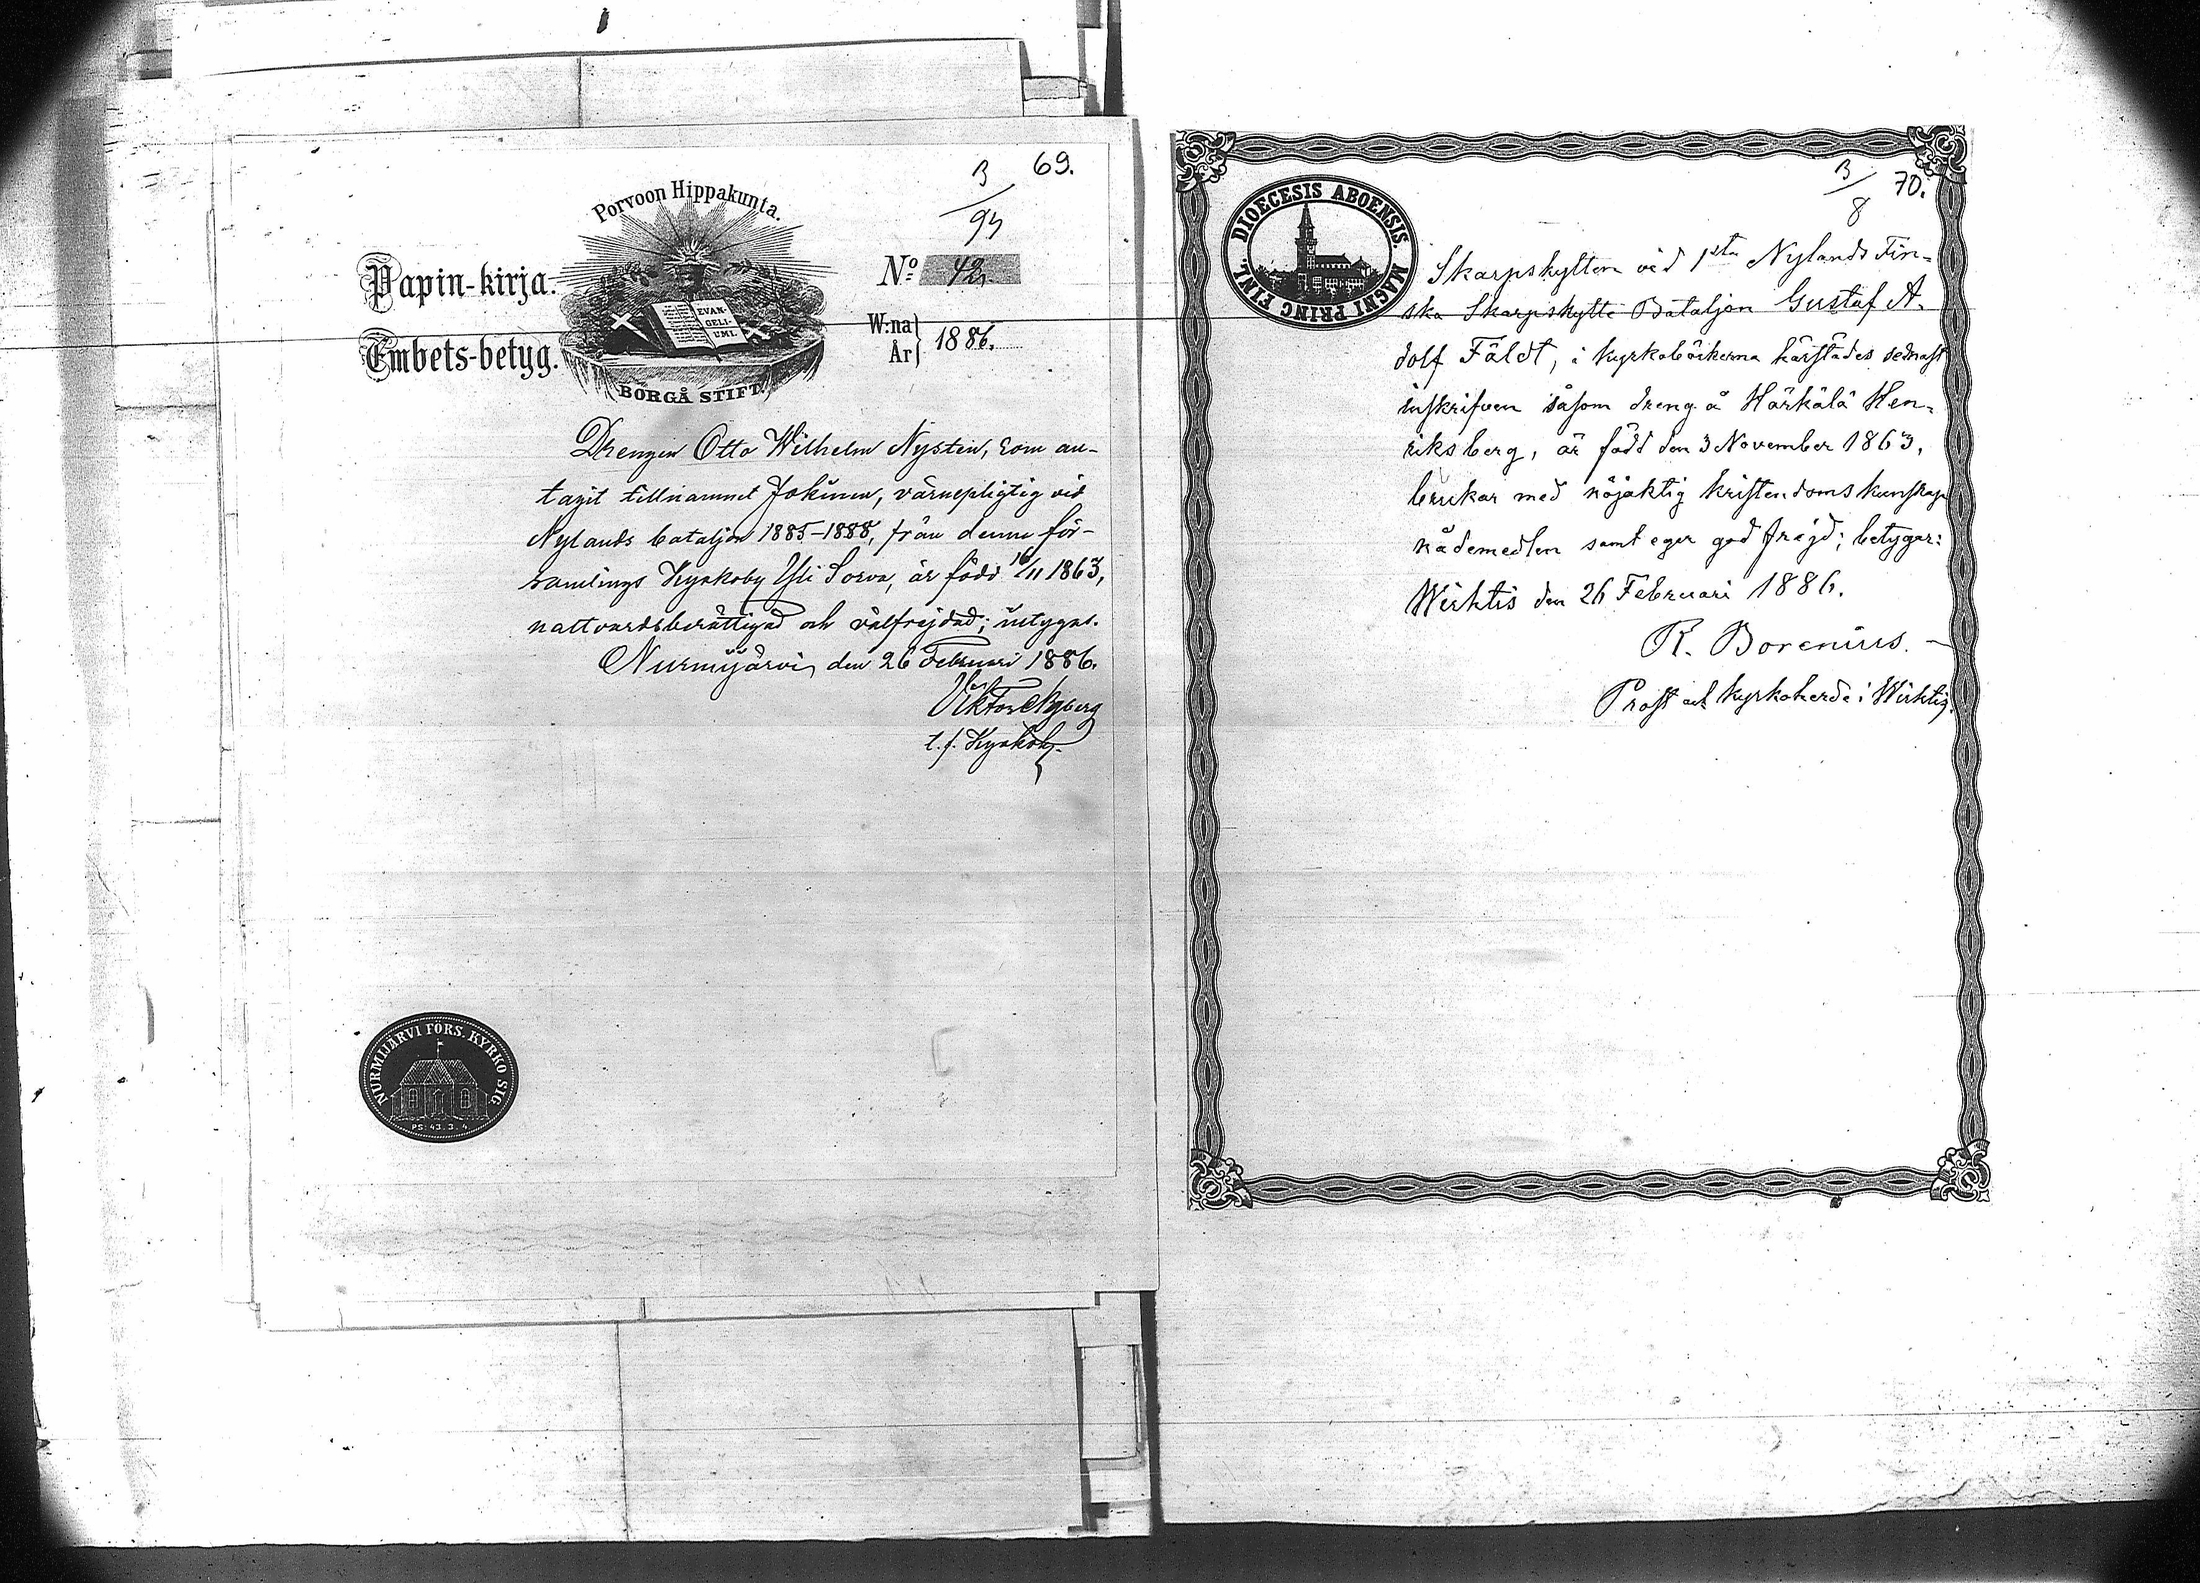 69.
B/94
Porvoon Hippakunta.
Papin-kirja.
Embets-betyg.
EVAN-
GELI-
UMI.
BORGÅ STIFT.
No 42.
W:na
År } 1886.
Drengen Otto Wilhelm Nysten, som an-
tagit tillnamnet Jokinen, värnepligtig vid
Nylands bataljon 1885–1888, från denne för-
samlings Kyrkoby Yli Sorva, är född /11 1863,
nattvardsberättigad och välfrejdad; intygas.
Nurmijärvi, den 26 Februari 1886.
Viktor
t.f. Kyrkoh.
NURMIJÄRVI FÖRS. KYRKO SIG.
PS: 43. 3. 4.
B/8
70.
DIOECESIS ABOENSIS. MAGNI PRINC FINL.
Skarpskytten vid 1sta Nylands Fin-
ska Skarpskytte Bataljon Gustaf A-
dolf Fäldt, i kyrkoböckerna härstädes sednast
inskrifven såsom dreng å Härkälä Hen-
riksberg, är född den 3 November 1863,
brukar med nöjaktig kristendomskunskap
nådemedlen samt eger god frejd; betygar:
Wichtis den 26 Februari 1886.
R. Borenius.
Prost och kyrkoherde i Wichtis.